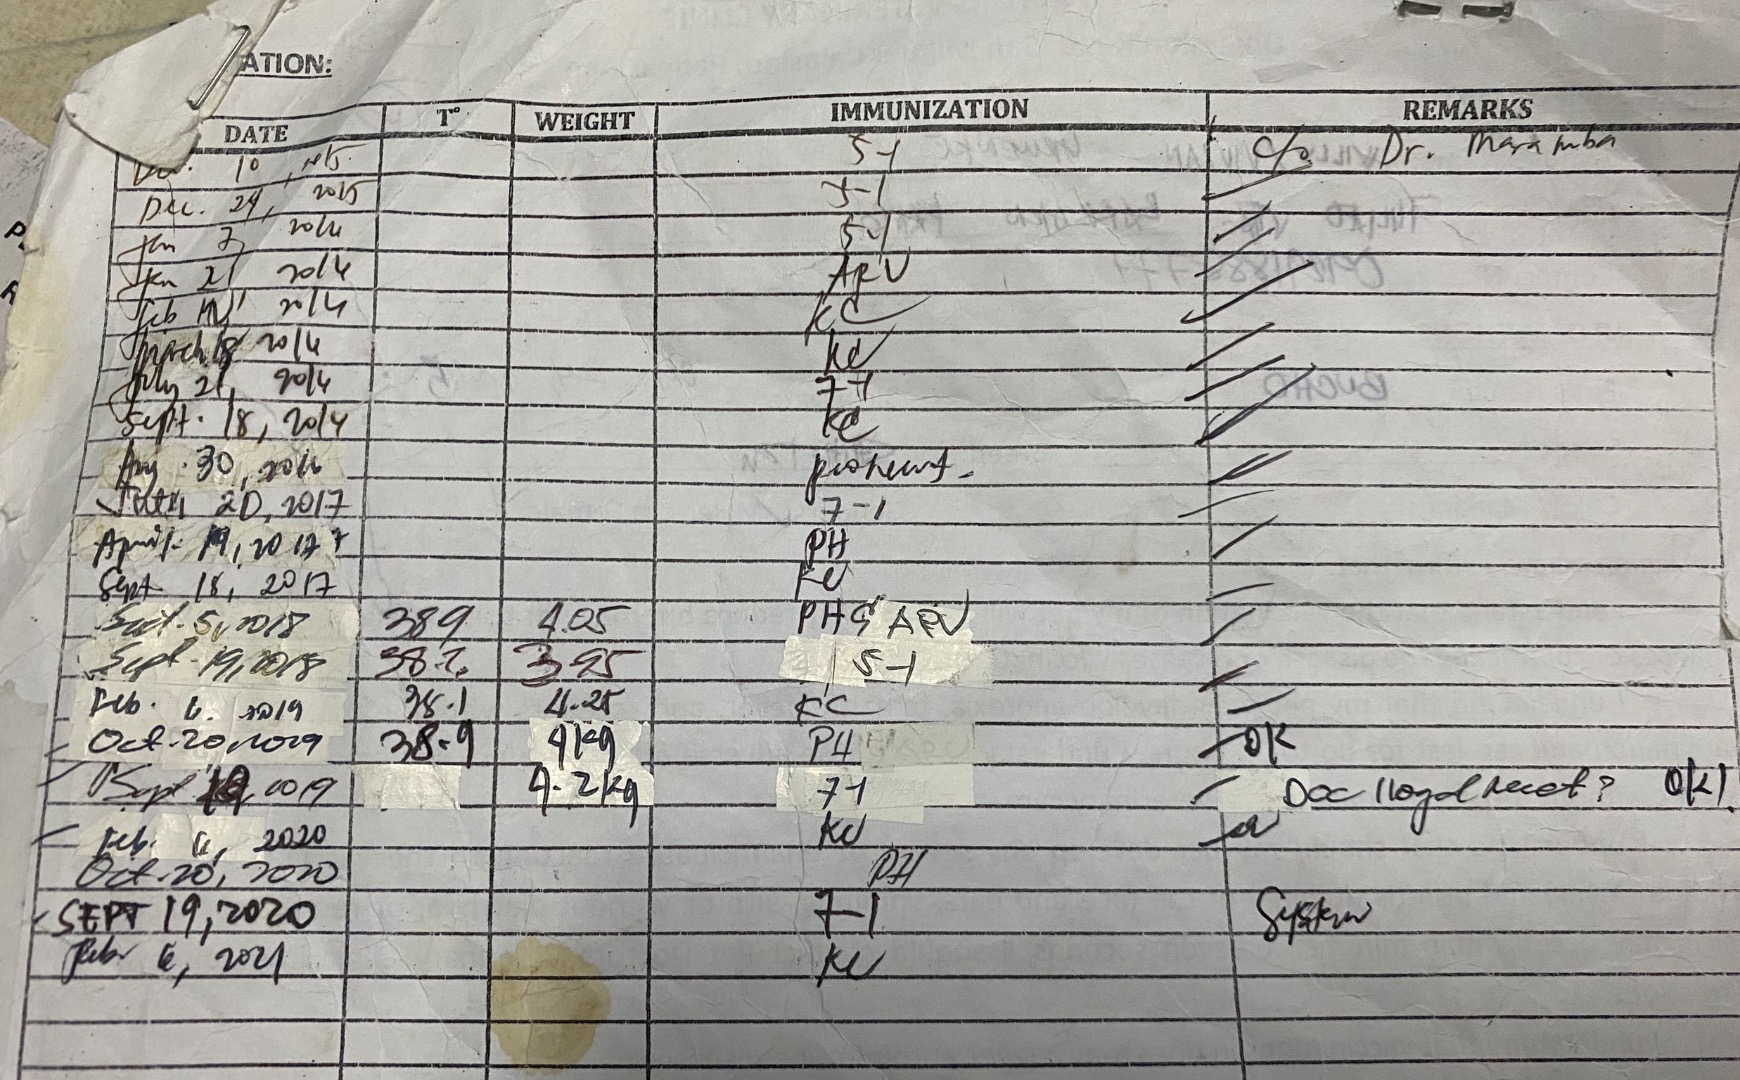 ATION:
DATE T° WEIGHT IMMUNIZATION REMARKS
10, 5-1 c/o Dr. Maramba
Dec. 24, 2015 5-1
Jan 7, 2014 5-1
Jan 21 2014 ARV
Feb 2014 KC
March 18 2014 KC
July 21, 2014 7-1
Sept. 18, 2014 KC
Aug. 30, 2016
20, 2017 7-1
April 19, 2017 PH
Sept 18, 2017 KC
5, 2018 389 4.05 PH & ARV
Sept. 19, 2018 38.2 3.95 5-1
Feb. 6. 2019 38.1 4.25 KC
Oct-20, 2029 38.9 4kg PH OK
Sept 19, 2019 4.2kg 7-1 Doc OK!
Feb. 6, 2020 KC
Oct-20, 2020 PH
SEPT 19, 2020 7-1 System
Feb 6, 2021 KC